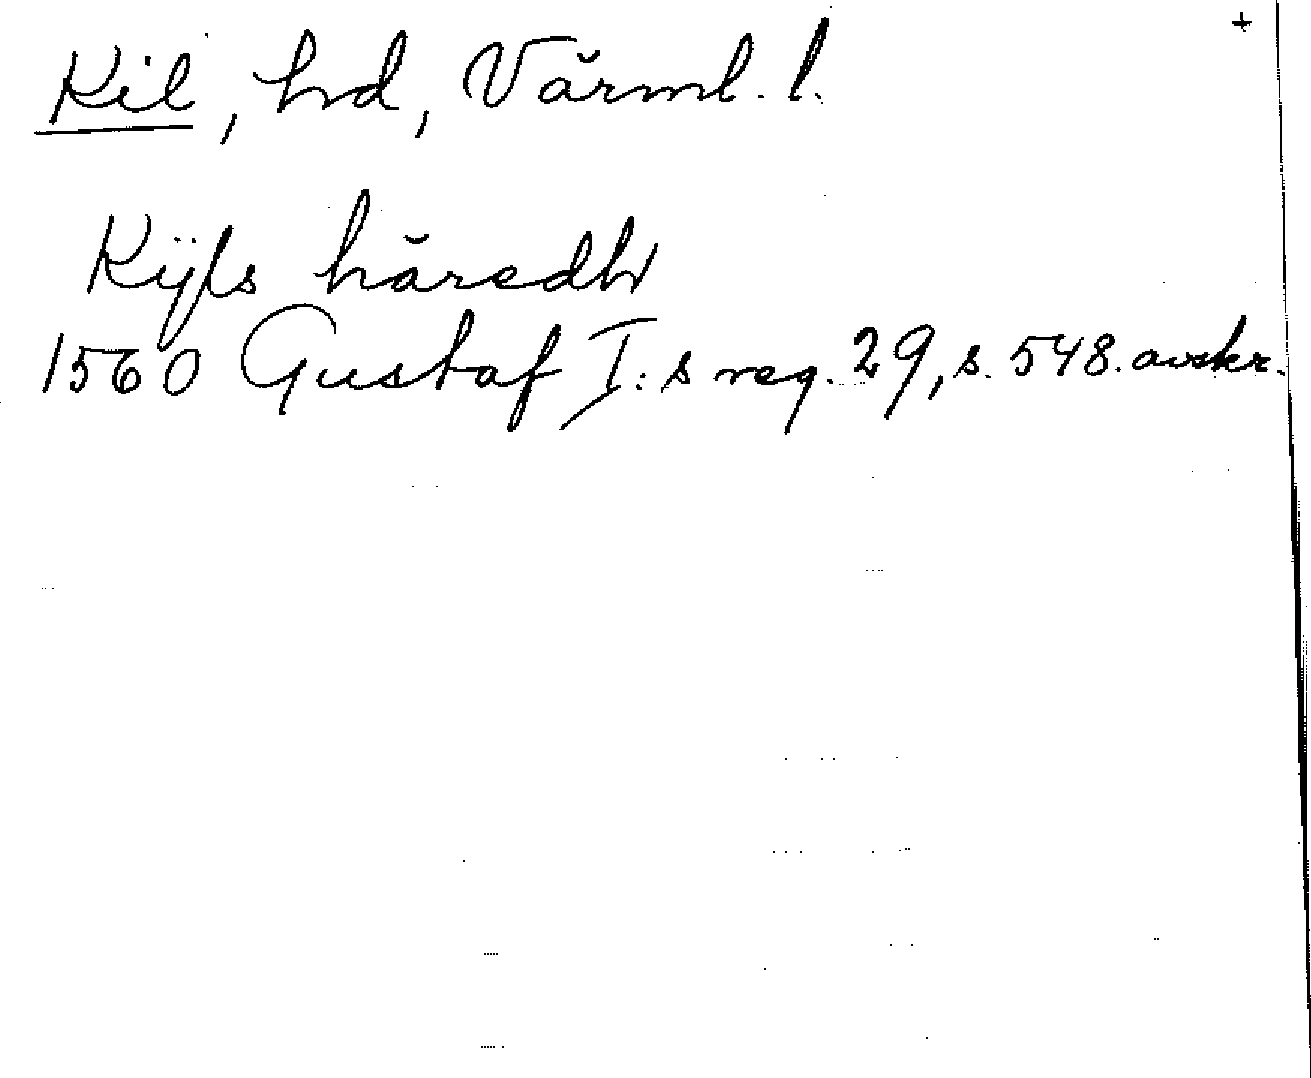 +
Kil, hd, Värml. l.
Kÿls häredh
1560 Gustaf I:s reg. 29, s. 548. avskr.